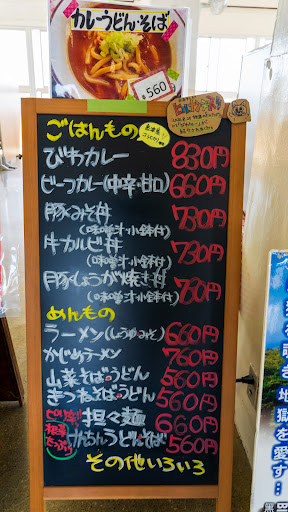 カレーうどん・そば
560
ごはんもの
びわカレー 830円
ビーフカレー(中辛・甘口) 660円
豚みそ丼 730円
(味噌汁・小鉢付)
牛カルビ丼 730円
(味噌汁・小鉢付)
豚しょうが焼き丼 730円
(味噌汁・小鉢付)
めんもの
ラーメン(しょうゆ・みそ) 660円
かじめラーメン 760円
山菜そば・うどん 560円
きつねそば・うどん 560円
ピリ辛!! 担々麺 660円
根菜たっぷり けんちんうどん・そば 560円
その他いろいろ
を覗き 地獄を愛す…